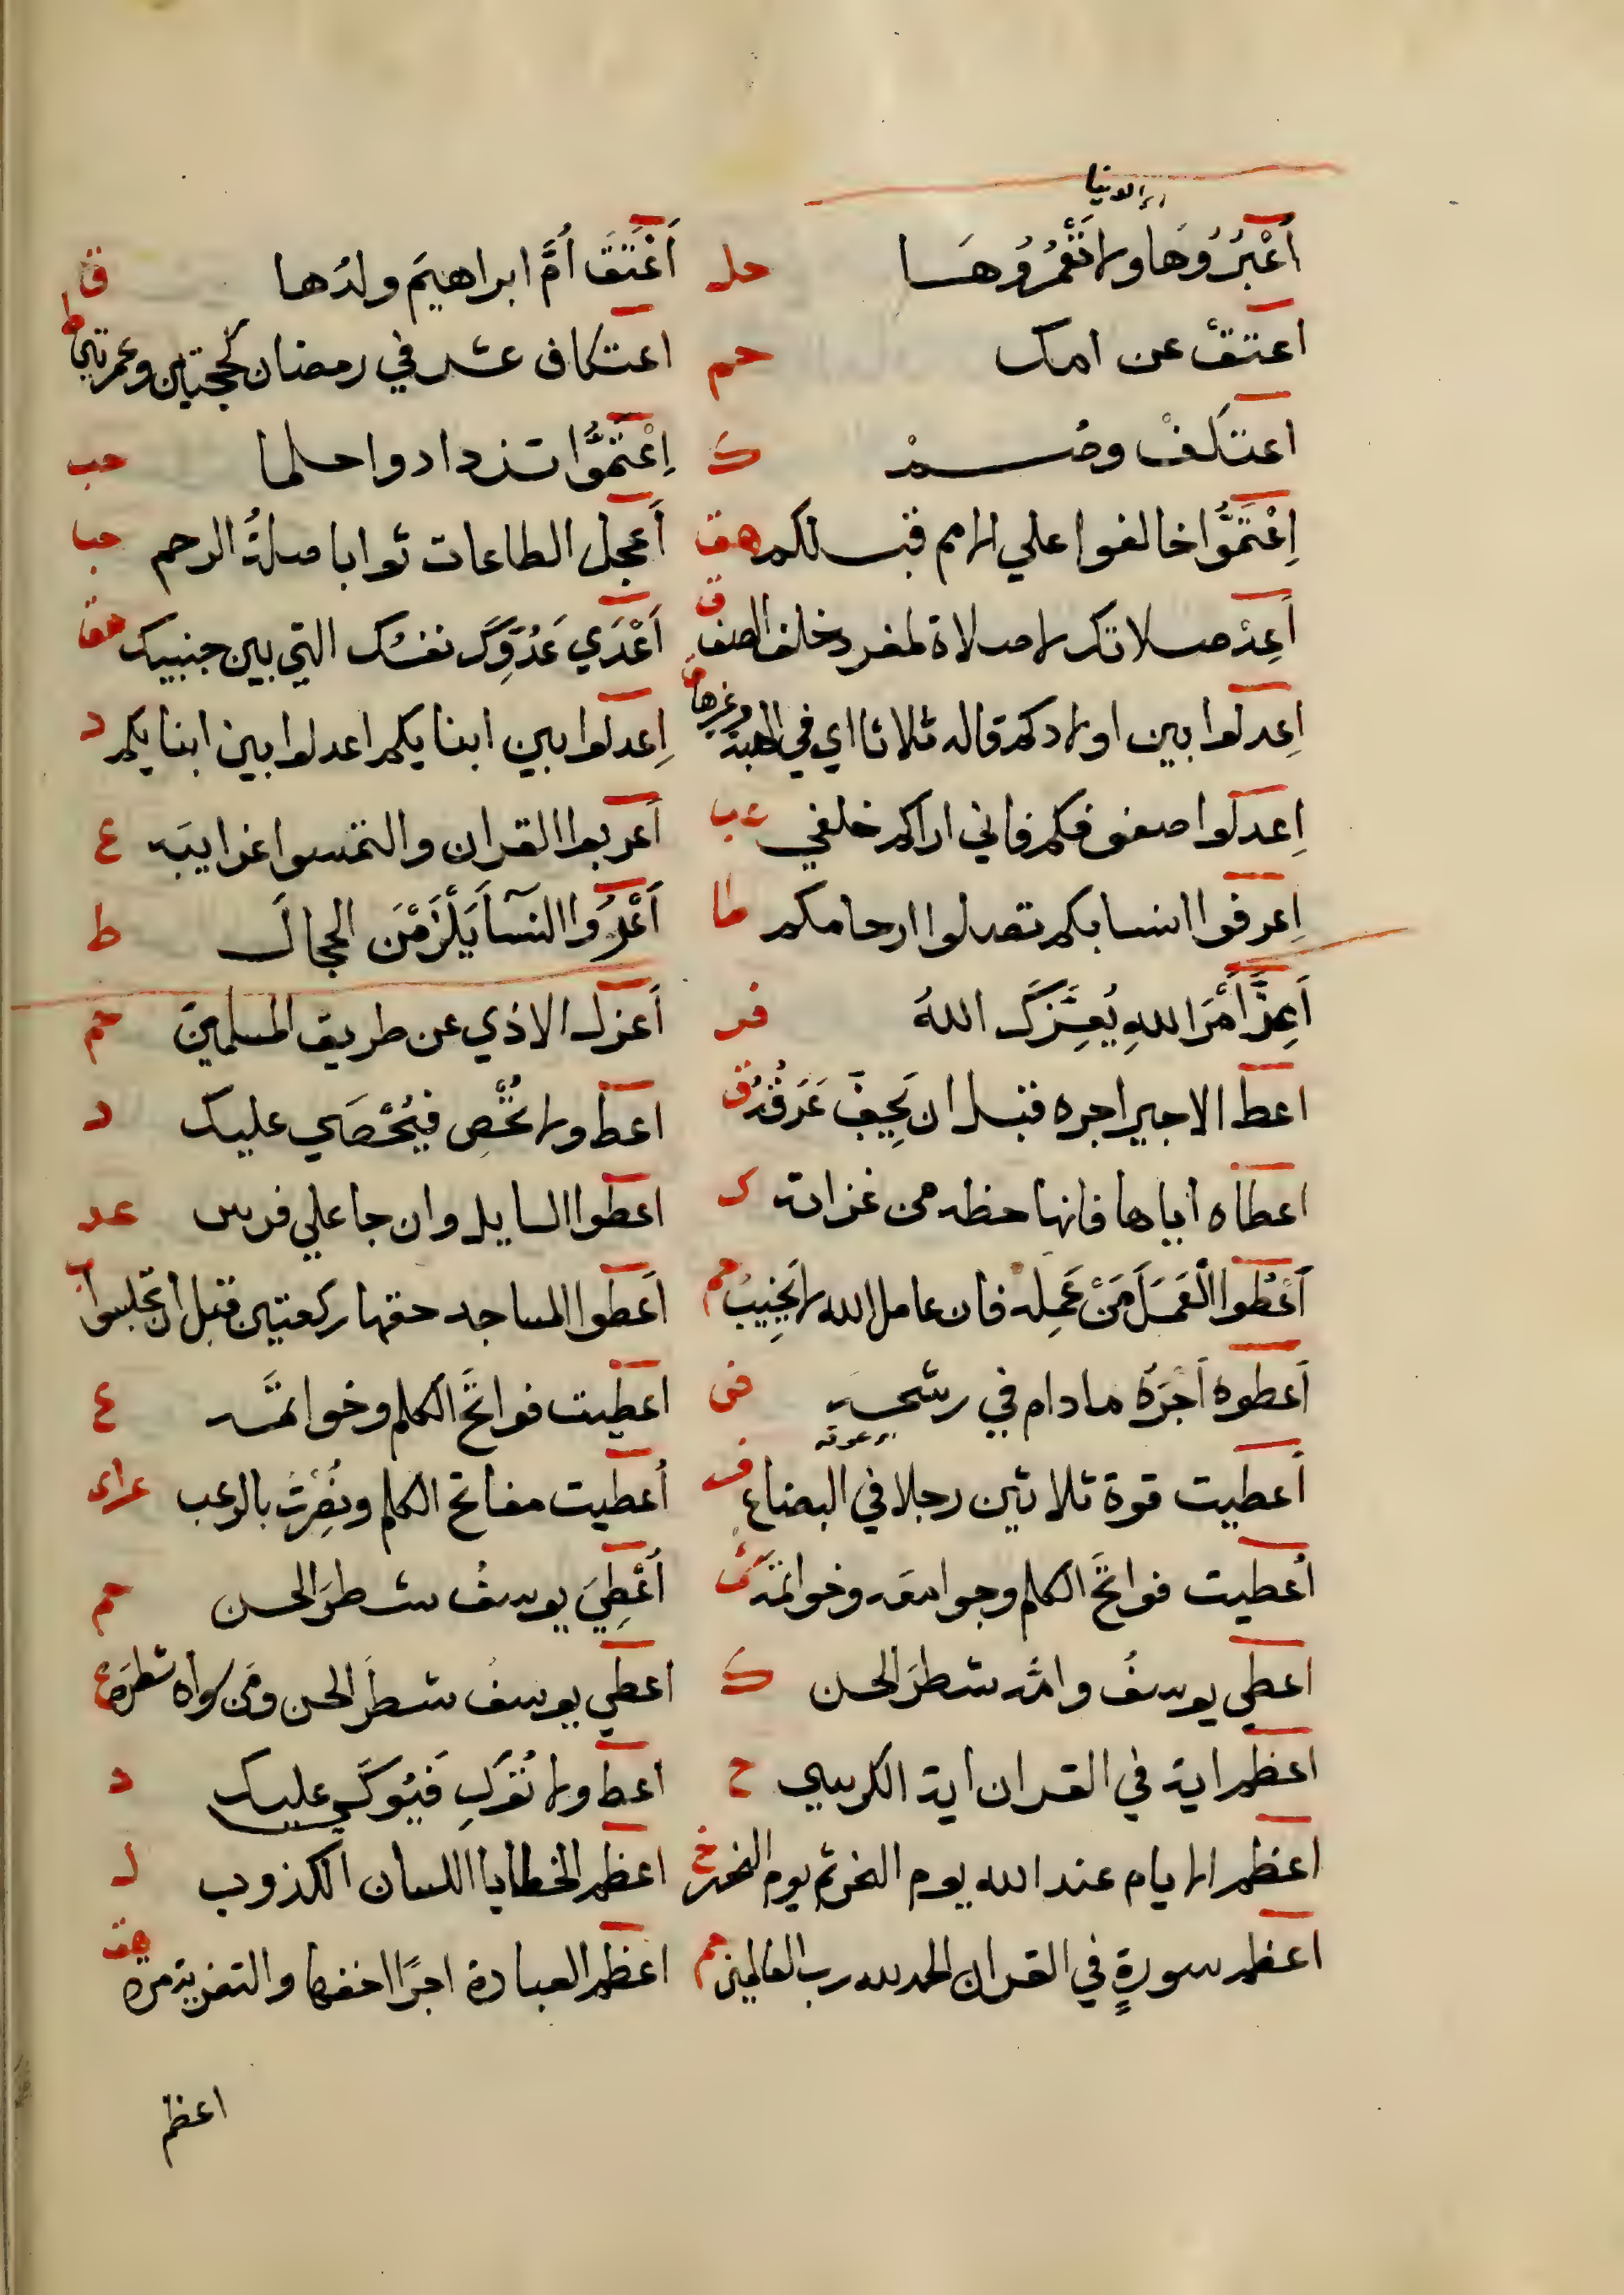 اي الدنيا
اُعْبُرُوهَا ولا تَعْمُرُوهَا حل اَعْتَقَ اُمَّ ابراهيمَ ولدُها ق
اعتق عن امك حم اعتكاف عشر في رمضان كحجتين وعمرتين ط
اعتكفْ وصُمْ ك اِعْتَمُّوا تزدادوا حلما حب
اِعْتَمُّوا خالفوا علي الامم قبلكم هق اَعجل الطاعات ثوابا صلةُ الرحم حبا
اَعِدْ صلاتك لا صلاة لمفرد خلف الصف ق اَعْدَي عَدُوِّكَ نفسُك التي بين جنبيك هق
اِعدلوا بين اولادكم قاله ثلاثا اي في الهبة وغيرها ق اِعدلوا بين ابنايكم اعدلوا بين ابنايكم د
اِعدلوا صفوفكم فاني اراكم خلفي عب اَعربوا القران والتمسوا غرايبَه ع
اِعرفوا انسابكم تصلوا ارحامكم طا اَعْرُوا النسآ يَلْزَمْنَ الحجالَ ط
اَعِزَّ اَمْرَ اللهِ يُعِزَّكَ اللهُ فر اَعزل الاذي عن طريق المسلمين حم
اعط الاجير اجره قبل ان يَجِفَّ عَرَقُهُ ق اعط ولا تُحْصِ فيُحْصَي عليك د
اعطاه اياها فانها حظه من غزاته ك اعطوا السايل وان جا علي فرس عد
اَعْطُوا الْعَمَلَ مَنْ عَمِلَه فان عامل الله لا يَخِيبُ حم اَعطوا المساجد حقها ركعتين قبل ان تجلسوا ب
اَعطوه اَجْرَهُ مادام في رشحه فى اعطيت فواتحَ الكلم وخواتمَه ع
اي عرقه
اُعطيت قوة ثلاثين رجلا في البضاع ف اُعطيت مفاتح الكلم ونُصِرْتُ بالرعب
اُعطيت فواتحَ الكلم وجوامعه وخواتمه ش اُعْطِيَ يوسفُ شطرَ الحسن حم
اعطي يوسفُ وامُّه شطرَ الحسن ك اعطي يوسفُ شطرَ الحسن ومَن سواه شطرَه ع
اعظم اية في القران اية الكرسي ح اعط ولا تُوكِ فَيُوكَي عليك د
اعظم الايام عند الله يوم النحر ثم يوم النفر خ اعظم الخطايا اللسان الكذوب ل
اعظم سورةٍ في القران الحمد لله رب العالمين حم اعظم العبادة اجرًا اخفها والتعزية مرة هق
اعظم